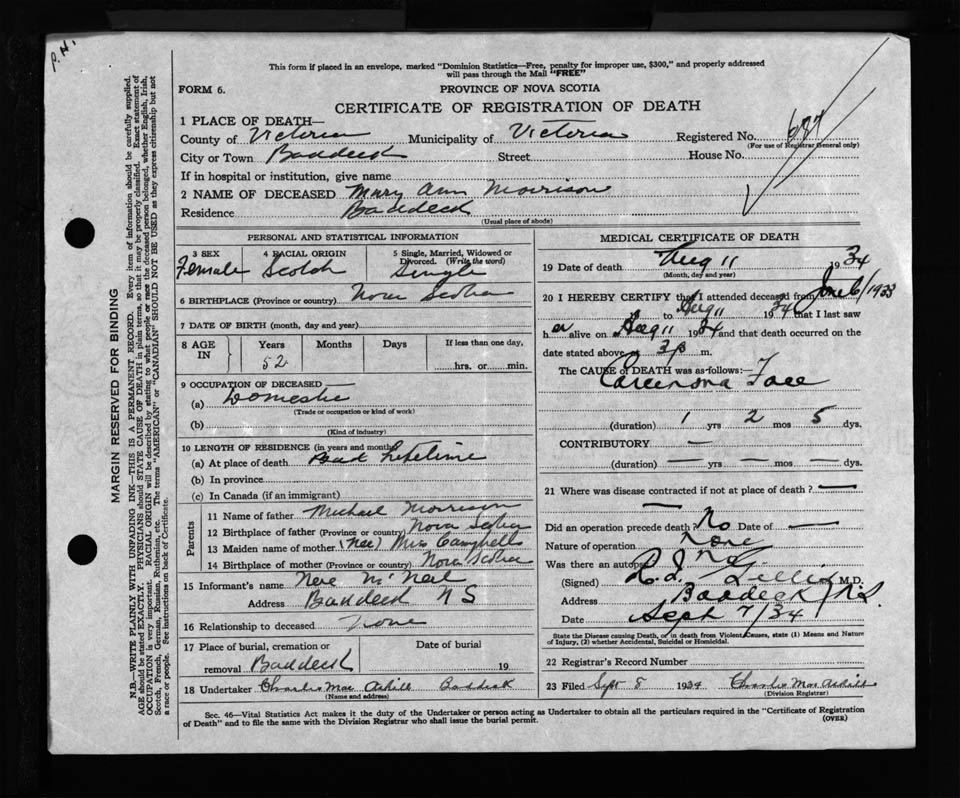 P.H.
This form if placed in an envelope, marked "Dominion Statistics—Free, penalty for improper use, $300," and properly addressed
will pass through the Mail "FREE"
FORM 6.
PROVINCE OF NOVA SCOTIA
CERTIFICATE OF REGISTRATION OF DEATH
1 PLACE OF DEATH—
County of Victoria Municipality of Victoria Registered No. 687
(For use of Registrar General only)
City or Town Baddeck Street House No.
If in hospital or institution, give name
2 NAME OF DECEASED Mary Ann Morrison
Residence Baddeck
(Usual place of abode)
PERSONAL AND STATISTICAL INFORMATION
3 SEX 4 RACIAL ORIGIN 5 Single, Married, Widowed or
Divorced. (Write the word)
Female Scotch Single
6 BIRTHPLACE (Province or country) Nova Scotia
7 DATE OF BIRTH (month, day and year)
8 AGE IN Years Months Days If less than one day,
52 hrs. or min.
9 OCCUPATION OF DECEASED
(a) Domestic
(Trade or occupation or kind of work)
(b)
(Kind of industry)
10 LENGTH OF RESIDENCE (in years and months)
(a) At place of death Lifetime
(b) In province
(c) In Canada (if an immigrant)
Parents
11 Name of father Michael Morrison
12 Birthplace of father (Province or country) Nova Scotia
13 Maiden name of mother (nee) Miss Campbell
14 Birthplace of mother (Province or country) Nova Scotia
15 Informant's name McNeil
Address Baddeck N S
16 Relationship to deceased None
17 Place of burial, cremation or Date of burial
removal Baddeck 19
18 Undertaker Charlie Mac Askill Baddeck
(Name and address)
MEDICAL CERTIFICATE OF DEATH
19 Date of death Aug 11 1934
(Month, day and year)
20 I HEREBY CERTIFY that I attended deceased from June 6/1933
to Aug 11 1934 that I last saw
her alive on Aug 11 1934 and that death occurred on the
date stated above at m.
The CAUSE of DEATH was as follows:—
Carcinoma Face
(duration) 1 yrs 2 mos 5 dys.
CONTRIBUTORY —
(duration) — yrs — mos — dys.
21 Where was disease contracted if not at place of death? —
—
Did an operation precede death? No Date of —
Nature of operation None
Was there an autopsy? No
(Signed) M.D.
Address Baddeck N.S.
Date Sept 7/34
State the Disease causing Death, or in death from Violent Causes, state (1) Means and Nature
of Injury, (2) whether Accidental, Suicidal or Homicidal.
22 Registrar's Record Number
23 Filed Sept 8 1934 Charlie Mac Askill
(Division Registrar)
Sec. 46—Vital Statistics Act makes it the duty of the Undertaker or person acting as Undertaker to obtain all the particulars required in the "Certificate of Registration
of Death" and to file the same with the Division Registrar who shall issue the burial permit.
(OVER)
MARGIN RESERVED FOR BINDING
N.B.—WRITE PLAINLY WITH UNFADING INK—THIS IS A PERMANENT RECORD. Every item of information should be carefully supplied.
AGE should be stated EXACTLY. PHYSICIANS should STATE CAUSE OF DEATH in plain terms, so that it may be properly classified. Exact statement of
OCCUPATION is very important. RACIAL ORIGIN will be described by stating to what people or race the deceased person belonged, whether English, Irish,
Scotch, French, German, Russian, Ruthenian, etc. The terms "AMERICAN" or "CANADIAN" SHOULD NOT BE USED as they express citizenship but not
a race or people. See instructions on back of Certificate.